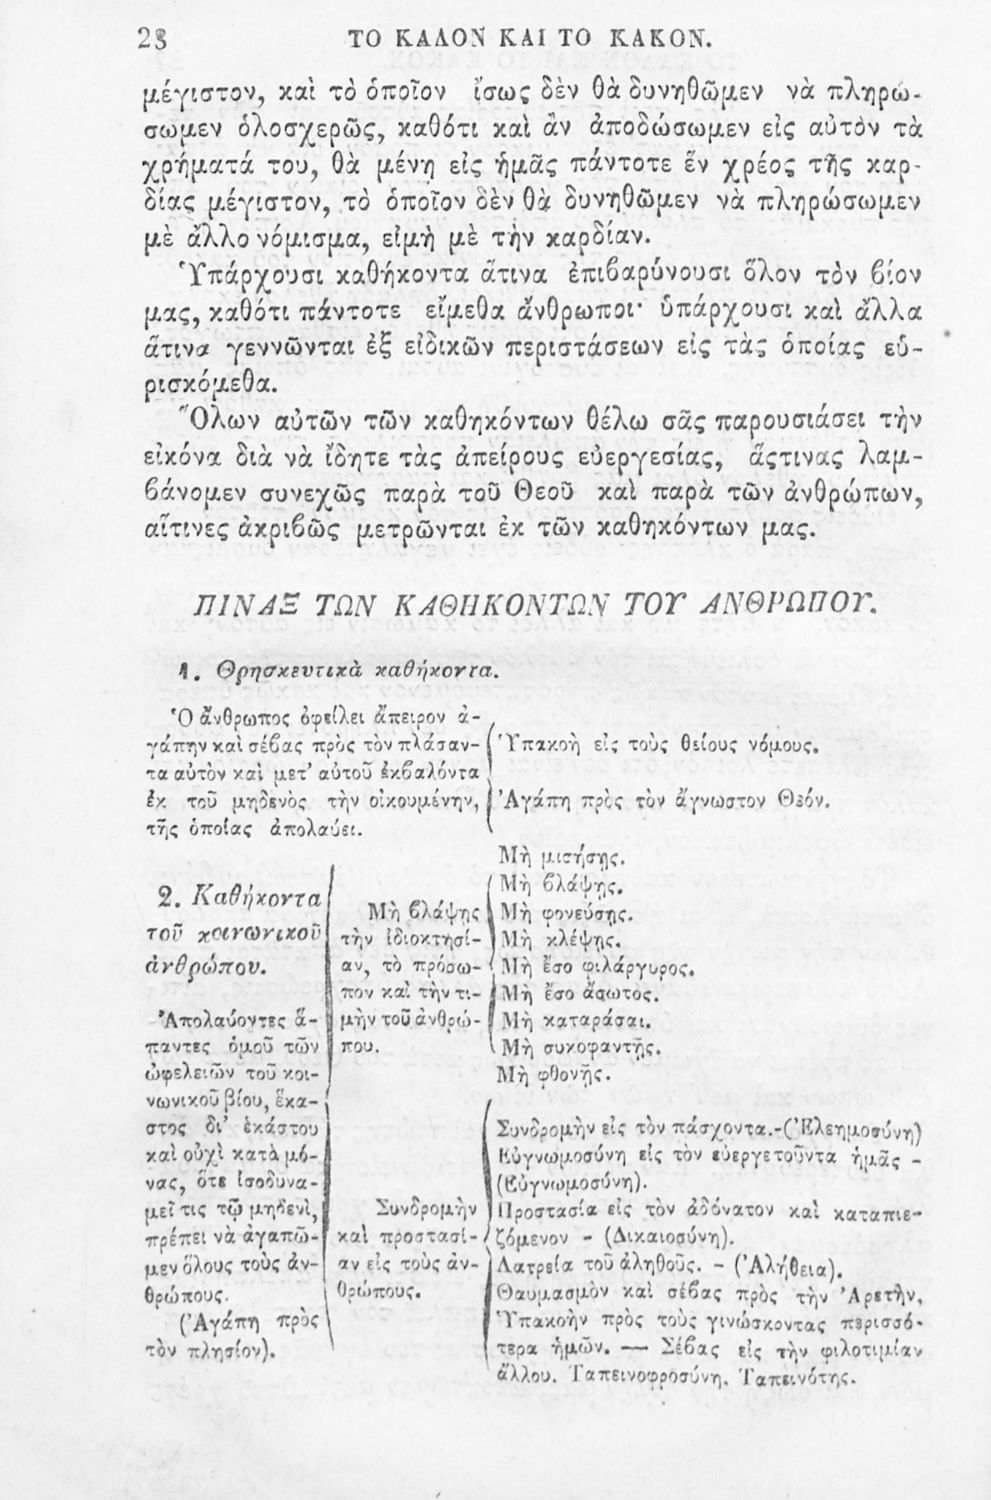 28 ΤΟ ΚΑΛΟΝ ΚΑΙ ΤΟ ΚΑΚΟΝ.
μέγιστον, καὶ τὸ ὁποῖον ἴσως δὲν θὰ δυνηθῶμεν νὰ πληρώ-
σωμεν ὁλοσχερῶς, καθότι καὶ ἂν ἀποδώσωμεν εἰς αὐτὸν τὰ
χρήματά του, θὰ μένῃ εἰς ἡμᾶς πάντοτε ἓν χρέος τῆς καρ-
δίας μέγιστον, τὸ ὁποῖον δὲν θὰ δυνηθῶμεν νὰ πληρώσωμεν
μὲ ἄλλο νόμισμα, εἰμὴ μὲ τὴν καρδίαν.
Ὑπάρχουσι καθήκοντα ἅτινα ἐπιβαρύνουσι ὅλον τὸν βίον
μας, καθότι πάντοτε εἴμεθα ἄνθρωποι· ὑπάρχουσι καὶ ἄλλα
ἅτινα γεννῶνται ἐξ εἰδικῶν περιστάσεων εἰς τὰς ὁποίας εὑ-
ρισκόμεθα.
Ὅλων αὐτῶν τῶν καθηκόντων θέλω σᾶς παρουσιάσει τὴν
εἰκόνα διὰ νὰ ἴδητε τὰς ἀπείρους εὐεργεσίας, ἅςτινας λαμ-
βάνομεν συνεχῶς παρὰ τοῦ Θεοῦ καὶ παρὰ τῶν ἀνθρώπων,
αἵτινες ἀκριβῶς μετρῶνται ἐκ τῶν καθηκόντων μας.
ΠΙΝΑΞ ΤΩΝ ΚΑΘΗΚΟΝΤΩΝ ΤΟΥ ΑΝΘΡΩΠΟΥ.
1. Θρησκευτικὰ καθήκοντα.
Ὁ ἄνθρωπος ὀφείλει ἄπειρον ἀ-
γάπην καὶ σέβας πρὸς τὸν πλάσαν-
τα αὐτὸν καὶ μετ' αὐτοῦ ἐκβαλόντα
ἐκ τοῦ μηδενὸς τὴν οἰκουμένην,
τῆς ὁποίας ἀπολαύει.
Ὑπακοὴ εἰς τοὺς θείους νόμους.
Ἀγάπη πρὸς τὸν ἄγνωστον Θεόν.
2. Καθήκοντα
τοῦ κοινωνικοῦ
ἀνθρώπου.
Ἀπολαύοντες ἅ-
παντες ὁμοῦ τῶν
ὠφελειῶν τοῦ κοι-
νωνικοῦ βίου, ἕκα-
στος δι' ἑκάστου
καὶ οὐχὶ κατὰ μό-
νας, ὅτε ἰσοδυνα-
μεῖ τις τῷ μηδενὶ,
πρέπει νὰ ἀγαπῶ-
μεν ὅλους τοὺς ἀν-
θρώπους.
(Ἀγάπη πρὸς
τὸν πλησίον).
Μὴ βλάψῃς
τὴν ἰδιοκτησί-
αν, τὸ πρόσω-
πον καὶ τὴν τι-
μὴν τοῦ ἀνθρώ-
που.
Μὴ μισήσῃς.
Μὴ βλάψῃς.
Μὴ φονεύσῃς.
Μὴ κλέψῃς.
Μὴ ἔσο φιλάργυρος.
Μὴ ἔσο ἄσωτος.
Μὴ καταράσαι.
Μὴ συκοφαντῇς.
Μὴ φθονῇς.
Συνδρομὴν
καὶ προστασί-
αν εἰς τοὺς ἀν-
θρώπους.
Συνδρομὴν εἰς τὸν πάσχοντα.-(Ἐλεημοσύνη)
Εὐγνωμοσύνη εἰς τὸν εὐεργετοῦντα ἡμᾶς -
(Εὐγνωμοσύνη).
Προστασία εἰς τὸν ἀδύνατον καὶ καταπιε-
ζόμενον - (Δικαιοσύνη).
Λατρεία τοῦ ἀληθοῦς. - (Ἀλήθεια).
Θαυμασμὸν καὶ σέβας πρὸς τὴν Ἀρετὴν,
Ὑπακοὴν πρὸς τοὺς γινώσκοντας περισσό-
τερα ἡμῶν. — Σέβας εἰς τὴν φιλοτιμίαν
ἄλλου. Ταπεινοφροσύνη. Ταπεινότης.